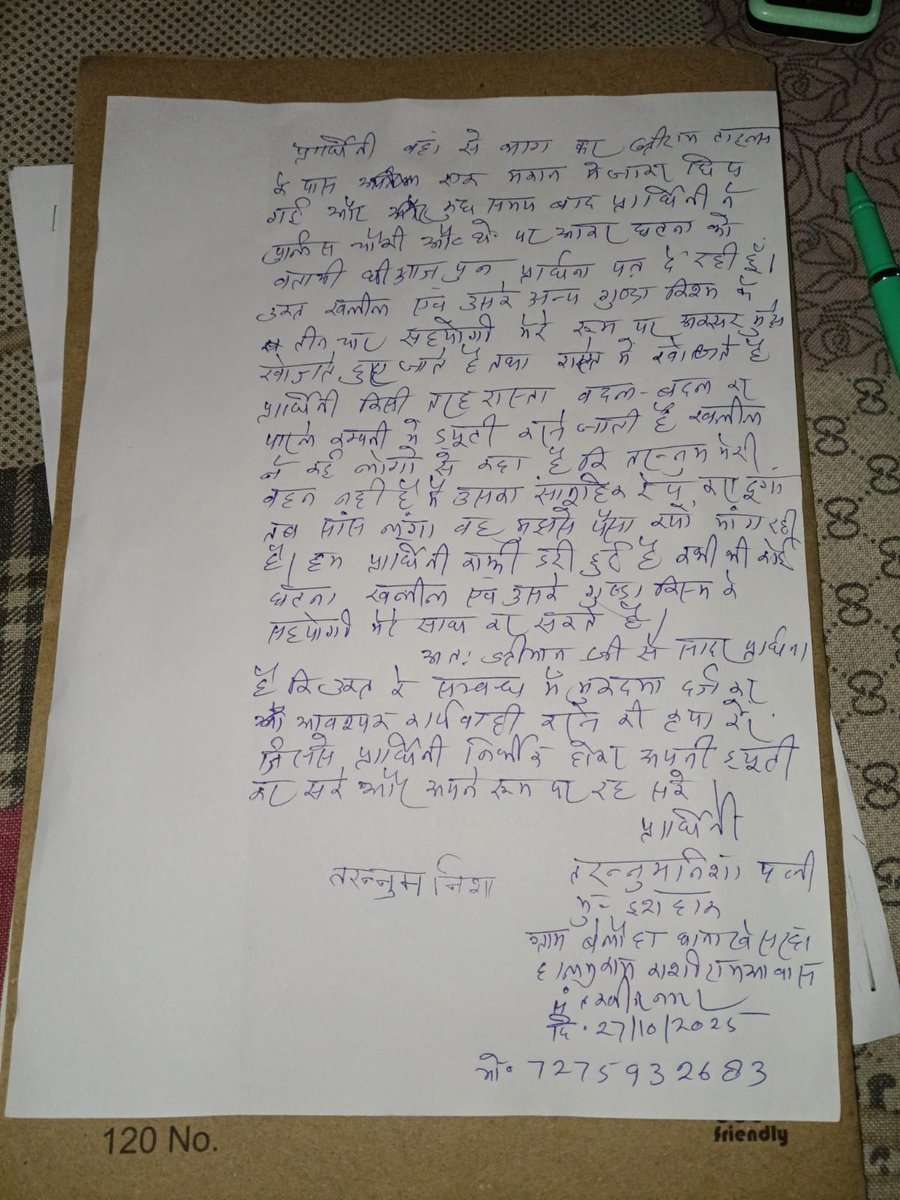 प्रार्थिनी वहां से भाग कर
के पास एक मकान में जाकर छिप
गई और कुछ समय बाद प्रार्थिनी ने
पुलिस चौकी पर आकर घटना को
बतायी थी आज पुनः प्रार्थना पत्र दे रही हूँ।
उक्त खलील एवं उसके अन्य गुण्डा किस्म के
तीन चार सहयोगी मेरे रूम पर अक्सर मुझे
खोजते हुए जाते है तथा रास्ते में खोजते है
प्रार्थिनी किसी तरह रास्ता बदल-बदल कर
पारले कम्पनी में ड्यूटी करने जाती है खलील
ने कई लोगो से कहा है कि तरन्नुम मेरी
बहन नही है मैं उसका सामूहिक रेप करा दूंगा
तब सांस लूंगा वह मुझसे पैसा क्यों मांग रही
है। हम प्रार्थिनी काफी डरी हुई है कभी भी कोई
घटना खलील एवं उसके गुण्डा किस्म के
सहयोगी मेरे साथ कर सकते है।
अतः श्रीमान जी से सादर प्रार्थना
है कि उक्त के सम्बन्ध में मुकदमा दर्ज कर
आवश्यक कार्यवाही करने की कृपा करें
जिससे प्रार्थिनी निर्भीक होकर अपनी ड्यूटी
कर सके और अपने रूम पर रह सके।
प्रार्थिनी
तरन्नुम निशा तरन्नुम निशा पत्नी
मु०
ग्राम थाना
हालमुकाम काशीराम आवास
दि. 27/10/2025
मो. 7275932683
120 No.
friendly